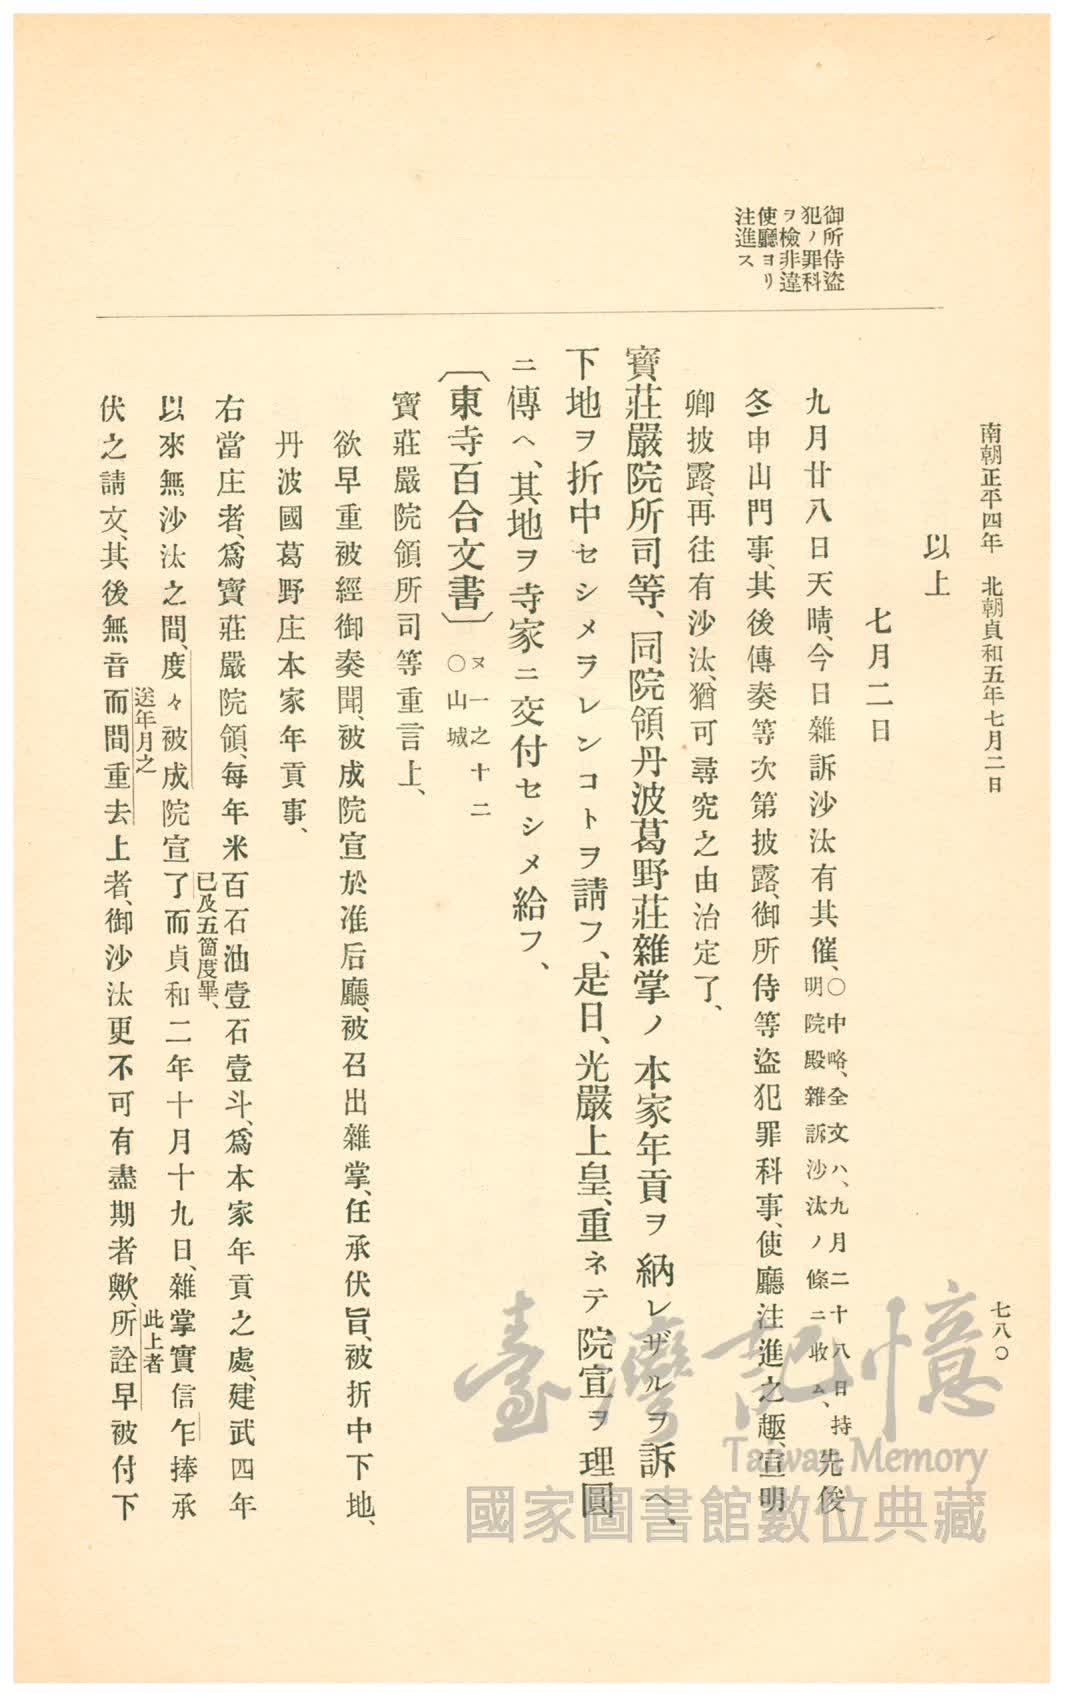 南朝正平四年　北朝貞和五年七月二日
七八〇
御所侍盜
犯ノ罪科
ヲ檢非違
使廳ヨリ
注進ス
以上
七月二日
九月廿八日天晴、今日雜訴沙汰有其催、〇中略、全文ハ、九月二十八日持明院殿雜訴沙汰ノ條ニ收ム、先俊
冬申山門事、其後傳奏等次第披露、御所侍等盜犯罪科事、使廳注進之趣、宣明
卿披露、再往有沙汰、猶可尋究之由治定了、
寶莊嚴院所司等、同院領丹波葛野莊雜掌ノ本家年貢ヲ納レザルヲ訴ヘ、
下地ヲ折中セシメラレンコトヲ請フ、是日、光嚴上皇、重ネテ院宣ヲ理圓
ニ傳ヘ、其地ヲ寺家ニ交付セシメ給フ、
〔東寺百合文書〕〇山城 ヌ一之十二
寶莊嚴院領所司等重言上、
欲早重被經御奏聞、被成院宣於准后廳、被召出雜掌、任承伏旨、被折中下地、
丹波國葛野庄本家年貢事、
右當庄者、爲寶莊嚴院領、每年米百石油壹石壹斗、爲本家年貢之處、建武四年
已及五箇度畢、
以來無沙汰之間、度々被成院宣了而貞和二年十月十九日、雜掌實信乍捧承
送年月之
此上者
伏之請文、其後無音而間重去上者、御沙汰更不可有盡期者歟、所詮早被付下
臺灣記憶
Taiwan Memory
國家圖書館數位典藏